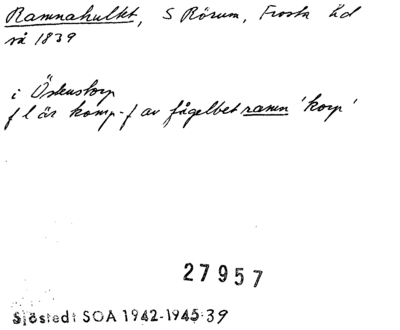 Ramnahultet, S Rörum, Frosta hd
rå 1839
i Östenstorp
f l är komp-f av fågelbet ramn 'korp'
27957
Sjöstedt SOA 1942-1945:39